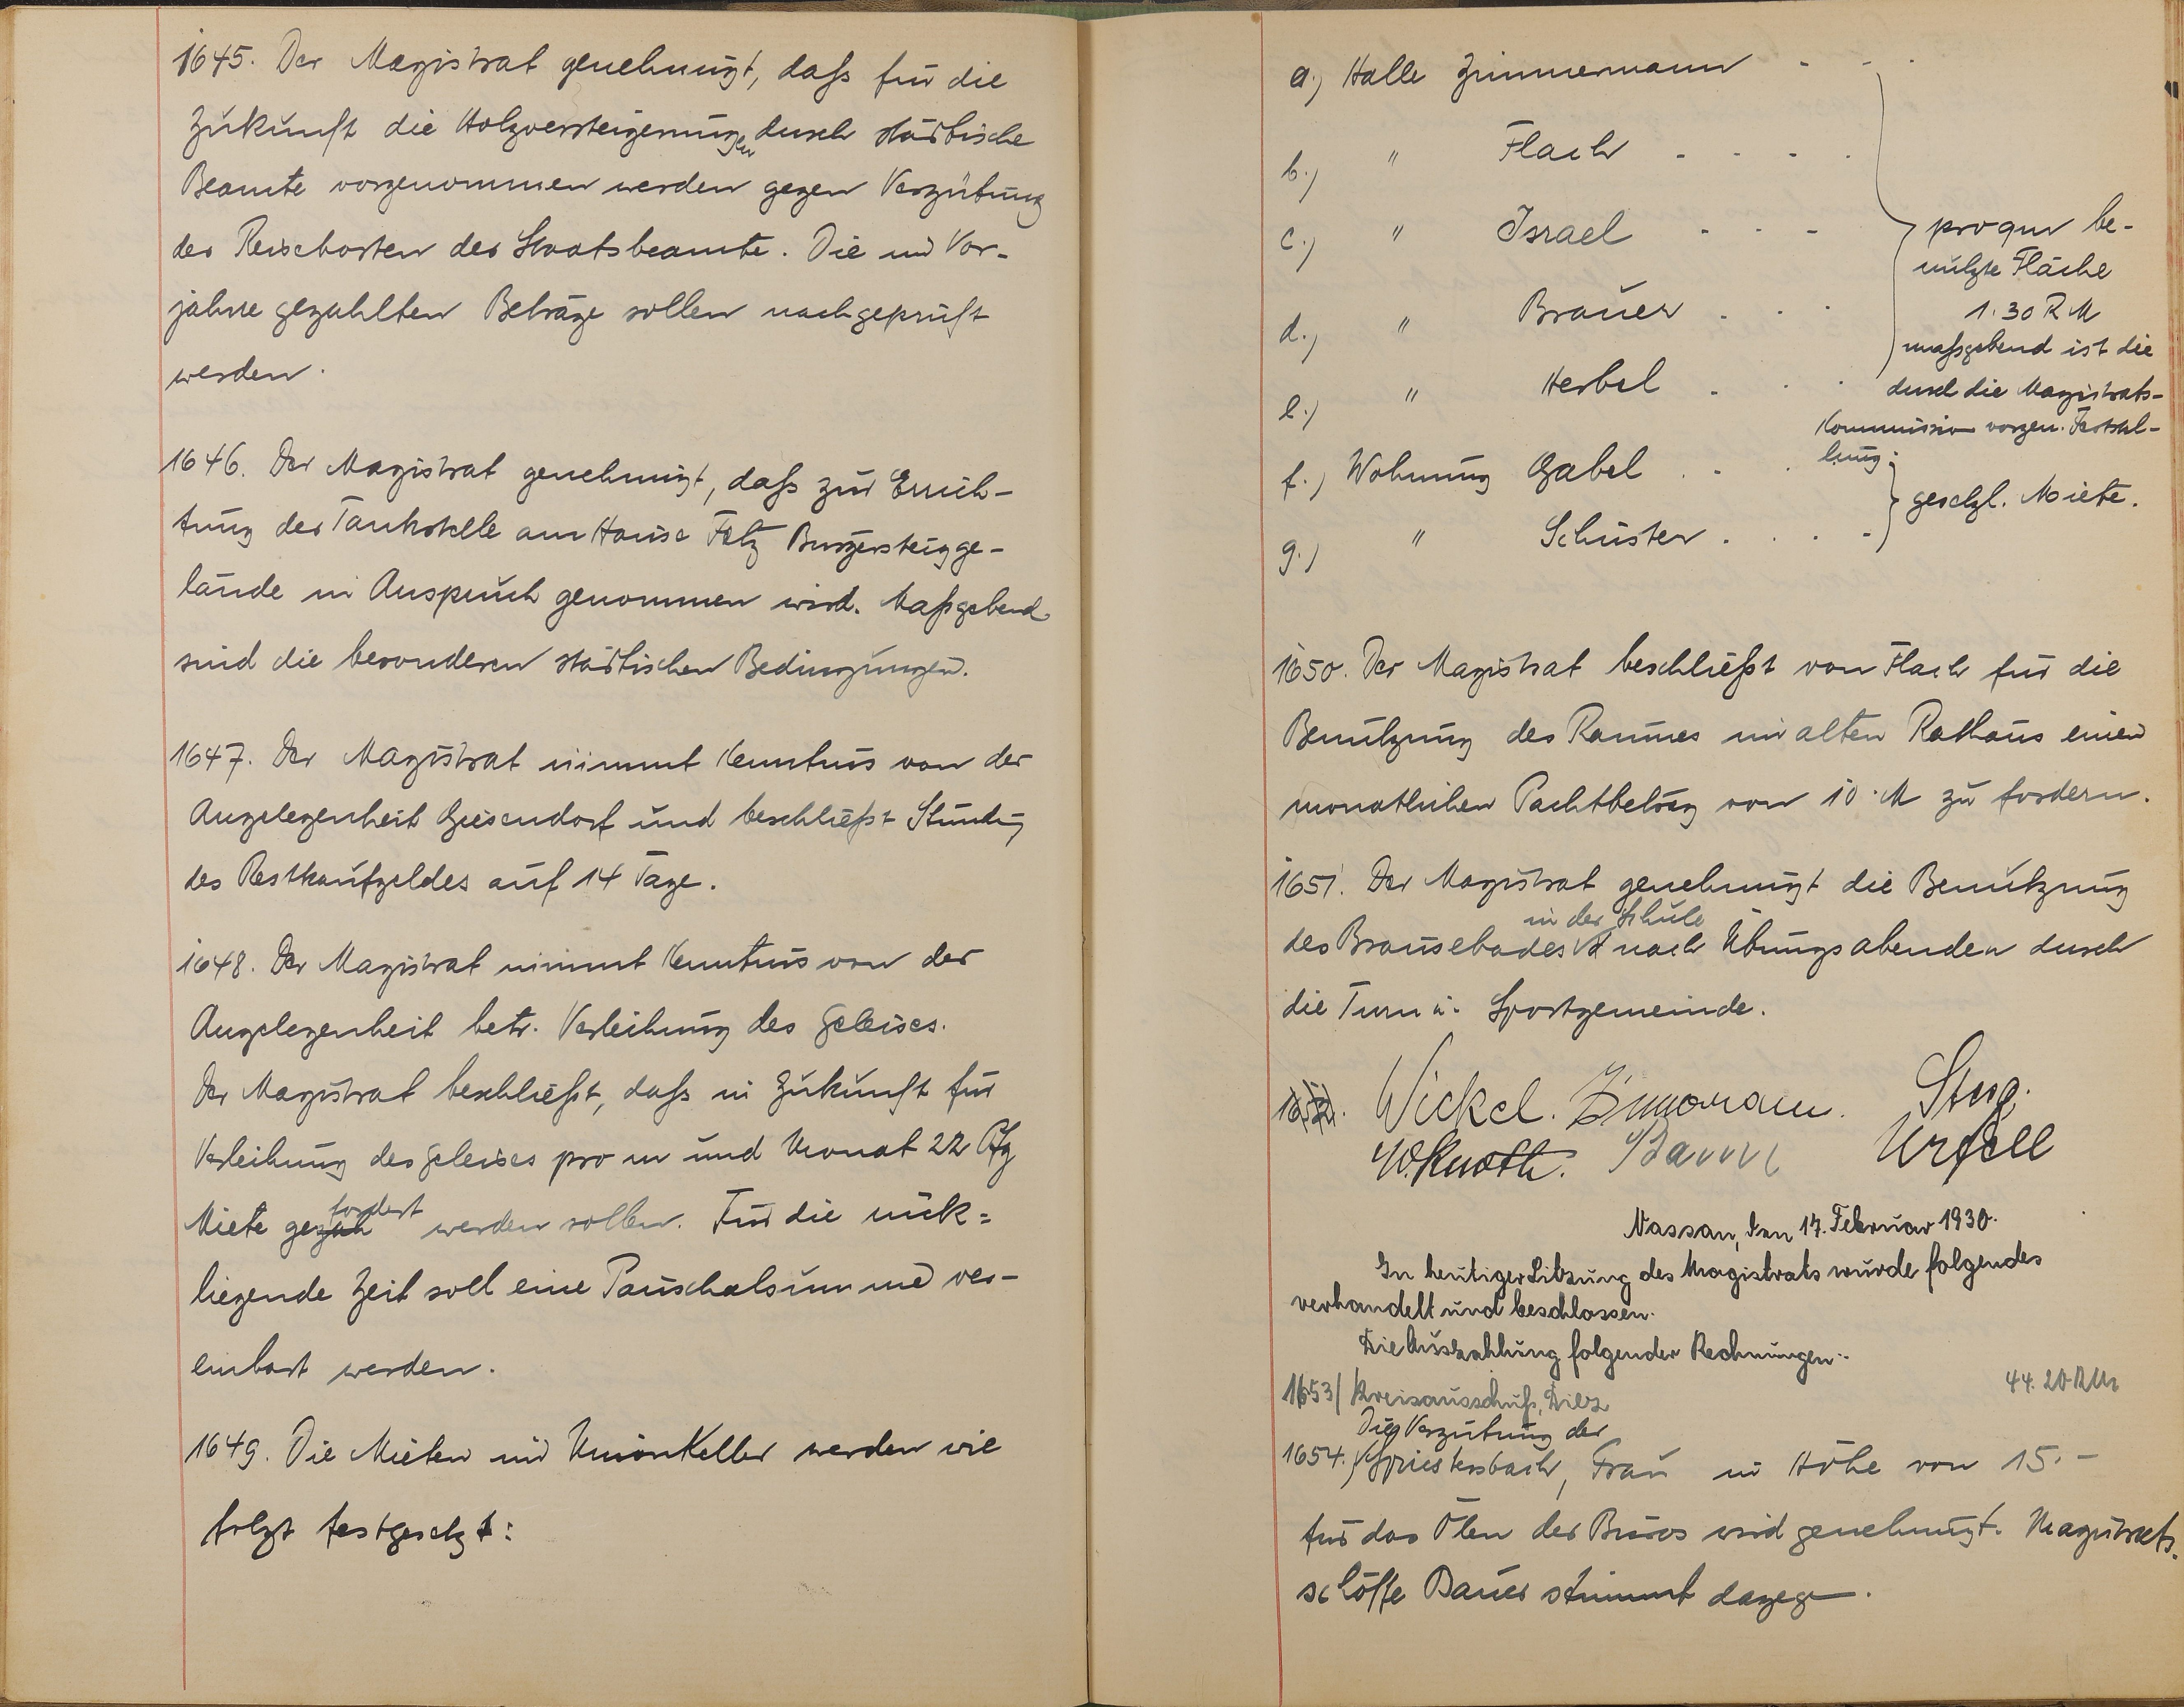 1645. Der Magistrat genehmigt, daß für die
Zukunft die Holzversteigerungen durch städtische
Beamte vorgenommen werden gegen Vergütung
der Reisekosten des Staatsbeamte. Die im Vor-
jahre gezahlten Beträge sollen nachgeprüft
werden.
1646. Der Magistrat genehmigt, daß zur Errich-
tung der Tankstelle am Hause Fetz Bürgersteigge-
lände in Anspruch genommen wird. Maßgebend
sind die besonderen städtischen Bedingungen.
1647. Der Magistrat nimmt Kenntnis von der
Angelegenheit Giesendorf und beschließt Stundung
des Restkaufgeldes auf 14 Tage.
1648. Der Magistrat nimmt Kenntnis von der
Angelegenheit betr. Verleihung des Geleises.
Der Magistrat beschließt, daß in Zukunft für
Verleihung des Geleises pro m und Monat 22 Pfg
Miete gefordert werden sollen. Für die rück=
liegende Zeit soll eine Pauschalsumme ver-
einbart werden.
1649. Die Mieten im Unionkeller werden wie
folgt festgesetzt:
a.) Halle Zimmermann - - -
b.) " Flach - - - -
c.) " Israel - - -
d.) " Brauer - - -
e.) " Herbel - - -
pro qm be-
nutzte Fläche
1.30 RM
maßgebend ist die
durch die Magistrats-
Kommission vorgen. Feststel-
lung.
f.) Wohnung Gabel . - .
g.) " Schuster . . . -
gesetzl. Miete.
1650. Der Magistrat beschließt von Flach für die
Benutzung des Raumes im alten Rathaus einen
monatlichen Pachtbetrag von 10 M zu fordern.
1651. Der Magistrat genehmigt die Benutzung
des Brausebades in der Schule nach Übungsabenden durch
die Turn u. Sportgemeinde.
1652. Wickel. Zimmermann.
W. Knoth. Bauer Urzell
Nassau, den 17. Februar 1930.
In heutiger Sitzung des Magistrats wurde folgendes
verhandelt und beschlossen.
Die Auszahlung folgender Rechnungen:
1653/ Kreisausschuß, Diez 44.20 RM
Die Vergütung der
1654.) Spriestersbach, Frau in Höhe von 15.-
für das Ölen der Büros wird genehmigt. Magistrats-
schöffe Bauer stimmt dagegen.